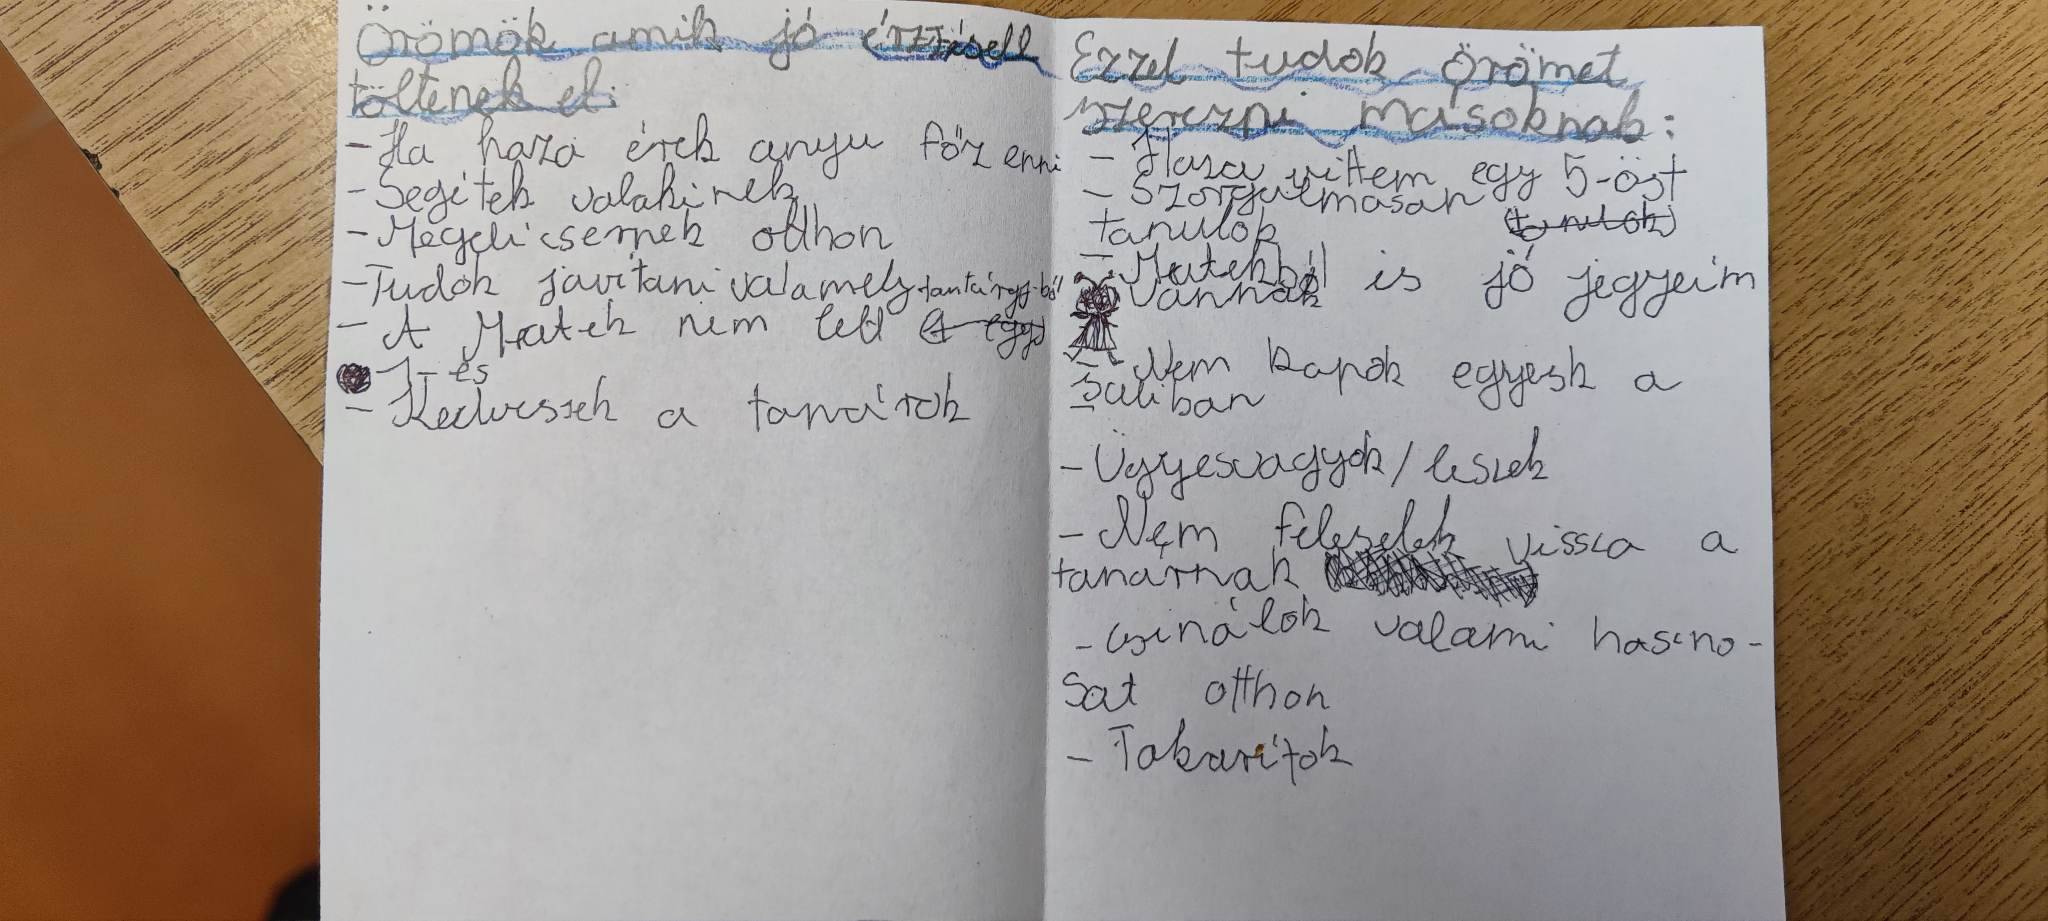 Örömök amik jó érzéssell
töltenek el:
- Ha haza érek anyu főz enni
- Segítek valakinek
- Megdicsernek otthon
- Tudok javítani valamely tantárgy-ból
- A Matek nem lett
1-es
- Kedvessek a tanárok
Ezzel tudok örömet
szerezni másoknak:
- Haza vittem egy 5-öst
- Szorgulmasan
tanulok (tanulok)
- Matekból is jó jegyeim
vannak
- Nem kapok egyesk a
suliban
- Ügyesvagyok/leszek
- Nem feleselek vissza a
tanarnak
- csinálok valami haszno-
sat otthon
- Takarítok